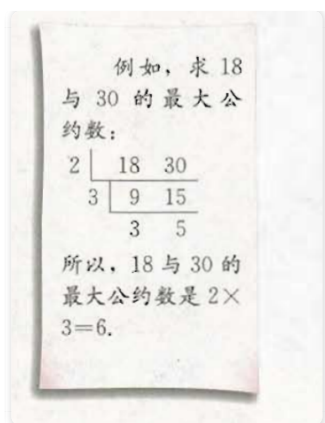 例如，求 18
与 30 的最大公
约数：
2 18 30
3 9 15
3 5
所以，18 与 30 的
最大公约数是 2×
3=6.